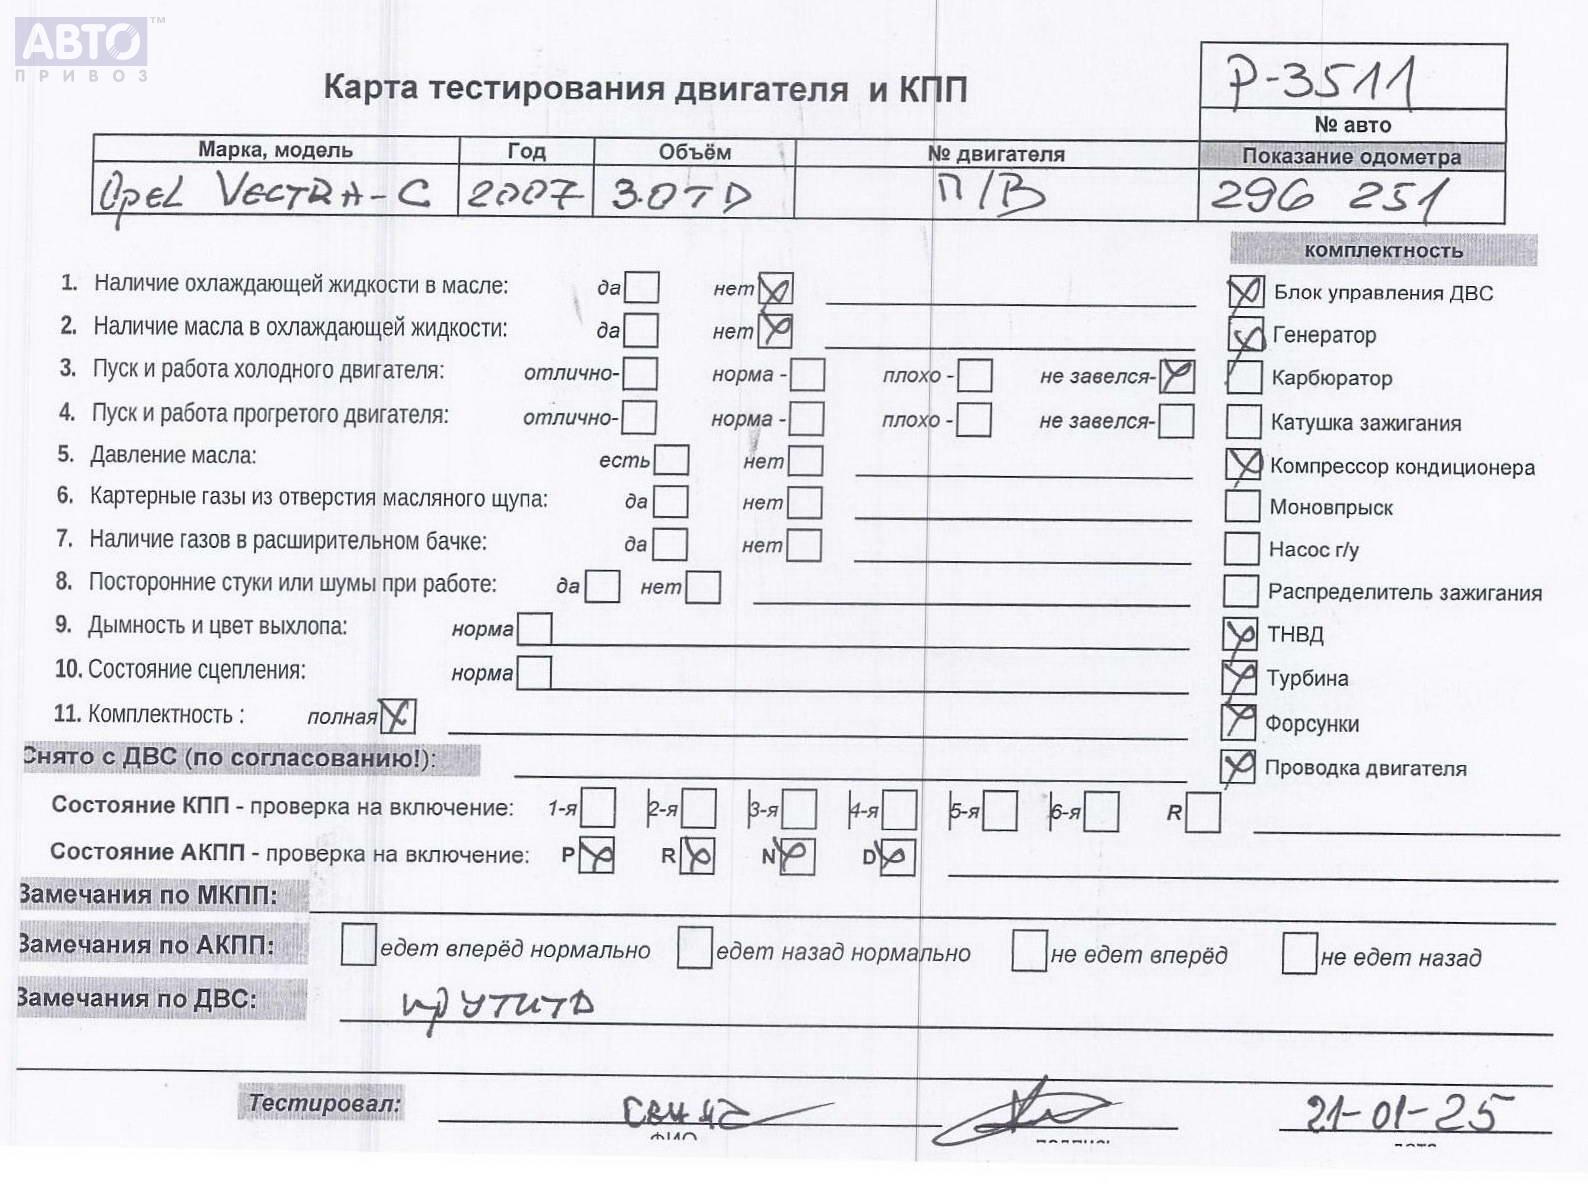 АВТО™
ПРИВОЗ
Карта тестирования двигателя и КПП
P-3511
№ авто
Марка, модель Год Объём № двигателя Показание одометра
Opel VECTRA-C 2007 3.0TD П/В 296 251
комплектность
1. Наличие охлаждающей жидкости в масле: да нет
Блок управления ДВС
2. Наличие масла в охлаждающей жидкости: да нет
Генератор
3. Пуск и работа холодного двигателя: отлично- норма - плохо - не завелся-
Карбюратор
4. Пуск и работа прогретого двигателя: отлично- норма - плохо - не завелся-
Катушка зажигания
5. Давление масла: есть нет
Компрессор кондиционера
6. Картерные газы из отверстия масляного щупа: да нет
Моновпрыск
7. Наличие газов в расширительном бачке: да нет
Насос г/у
8. Посторонние стуки или шумы при работе: да нет
Распределитель зажигания
9. Дымность и цвет выхлопа: норма
ТНВД
10. Состояние сцепления: норма
Турбина
11. Комплектность : полная
Форсунки
Снято с ДВС (по согласованию!):
Проводка двигателя
Состояние КПП - проверка на включение: 1-я 2-я 3-я 4-я 5-я 6-я R
Состояние АКПП - проверка на включение: P R N D
Замечания по МКПП:
Замечания по АКПП: едет вперёд нормально едет назад нормально не едет вперёд не едет назад
Замечания по ДВС: крутить
Тестировал: 21-01-25
ФИО подпись дата